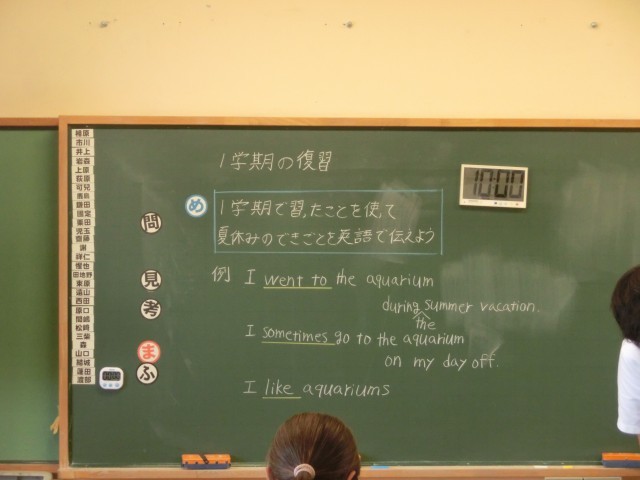 1学期の復習
め
1学期で習ったことを使って
夏休みのできごとを英語で伝えよう
例 I went to the aquarium
during the summer vacation.
I sometimes go to the aquarium
on my day off.
I like aquariums
問
見
考
ま
ふ
10:00
市川
井上
岩森
上原
荻原
可兒
鎌田
児玉
齋藤
謝
祥仁
田地野
東原
遠山
西田
原口
間嶋
松崎
三柴
森
山口
結城
蓮田
渡部